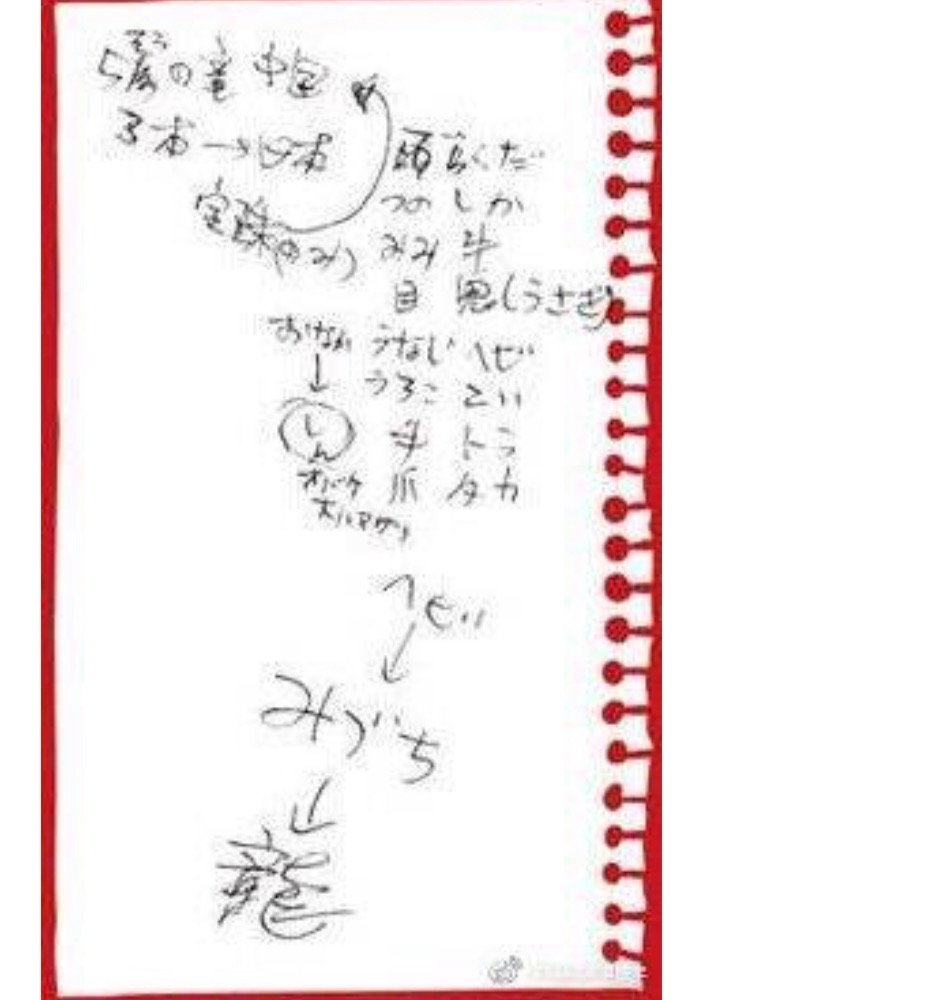 5爪の竜 中国
3本→日本
宝珠(のみ)
頭 らくだ
つの しか
みみ 牛
目 鬼(うさぎ)
うなじ へび
うろこ こい
手 トラ
爪 タカ
おなか
↓
しん
オバケ
オハマグリ
へび
↓
みづち
↓
龍